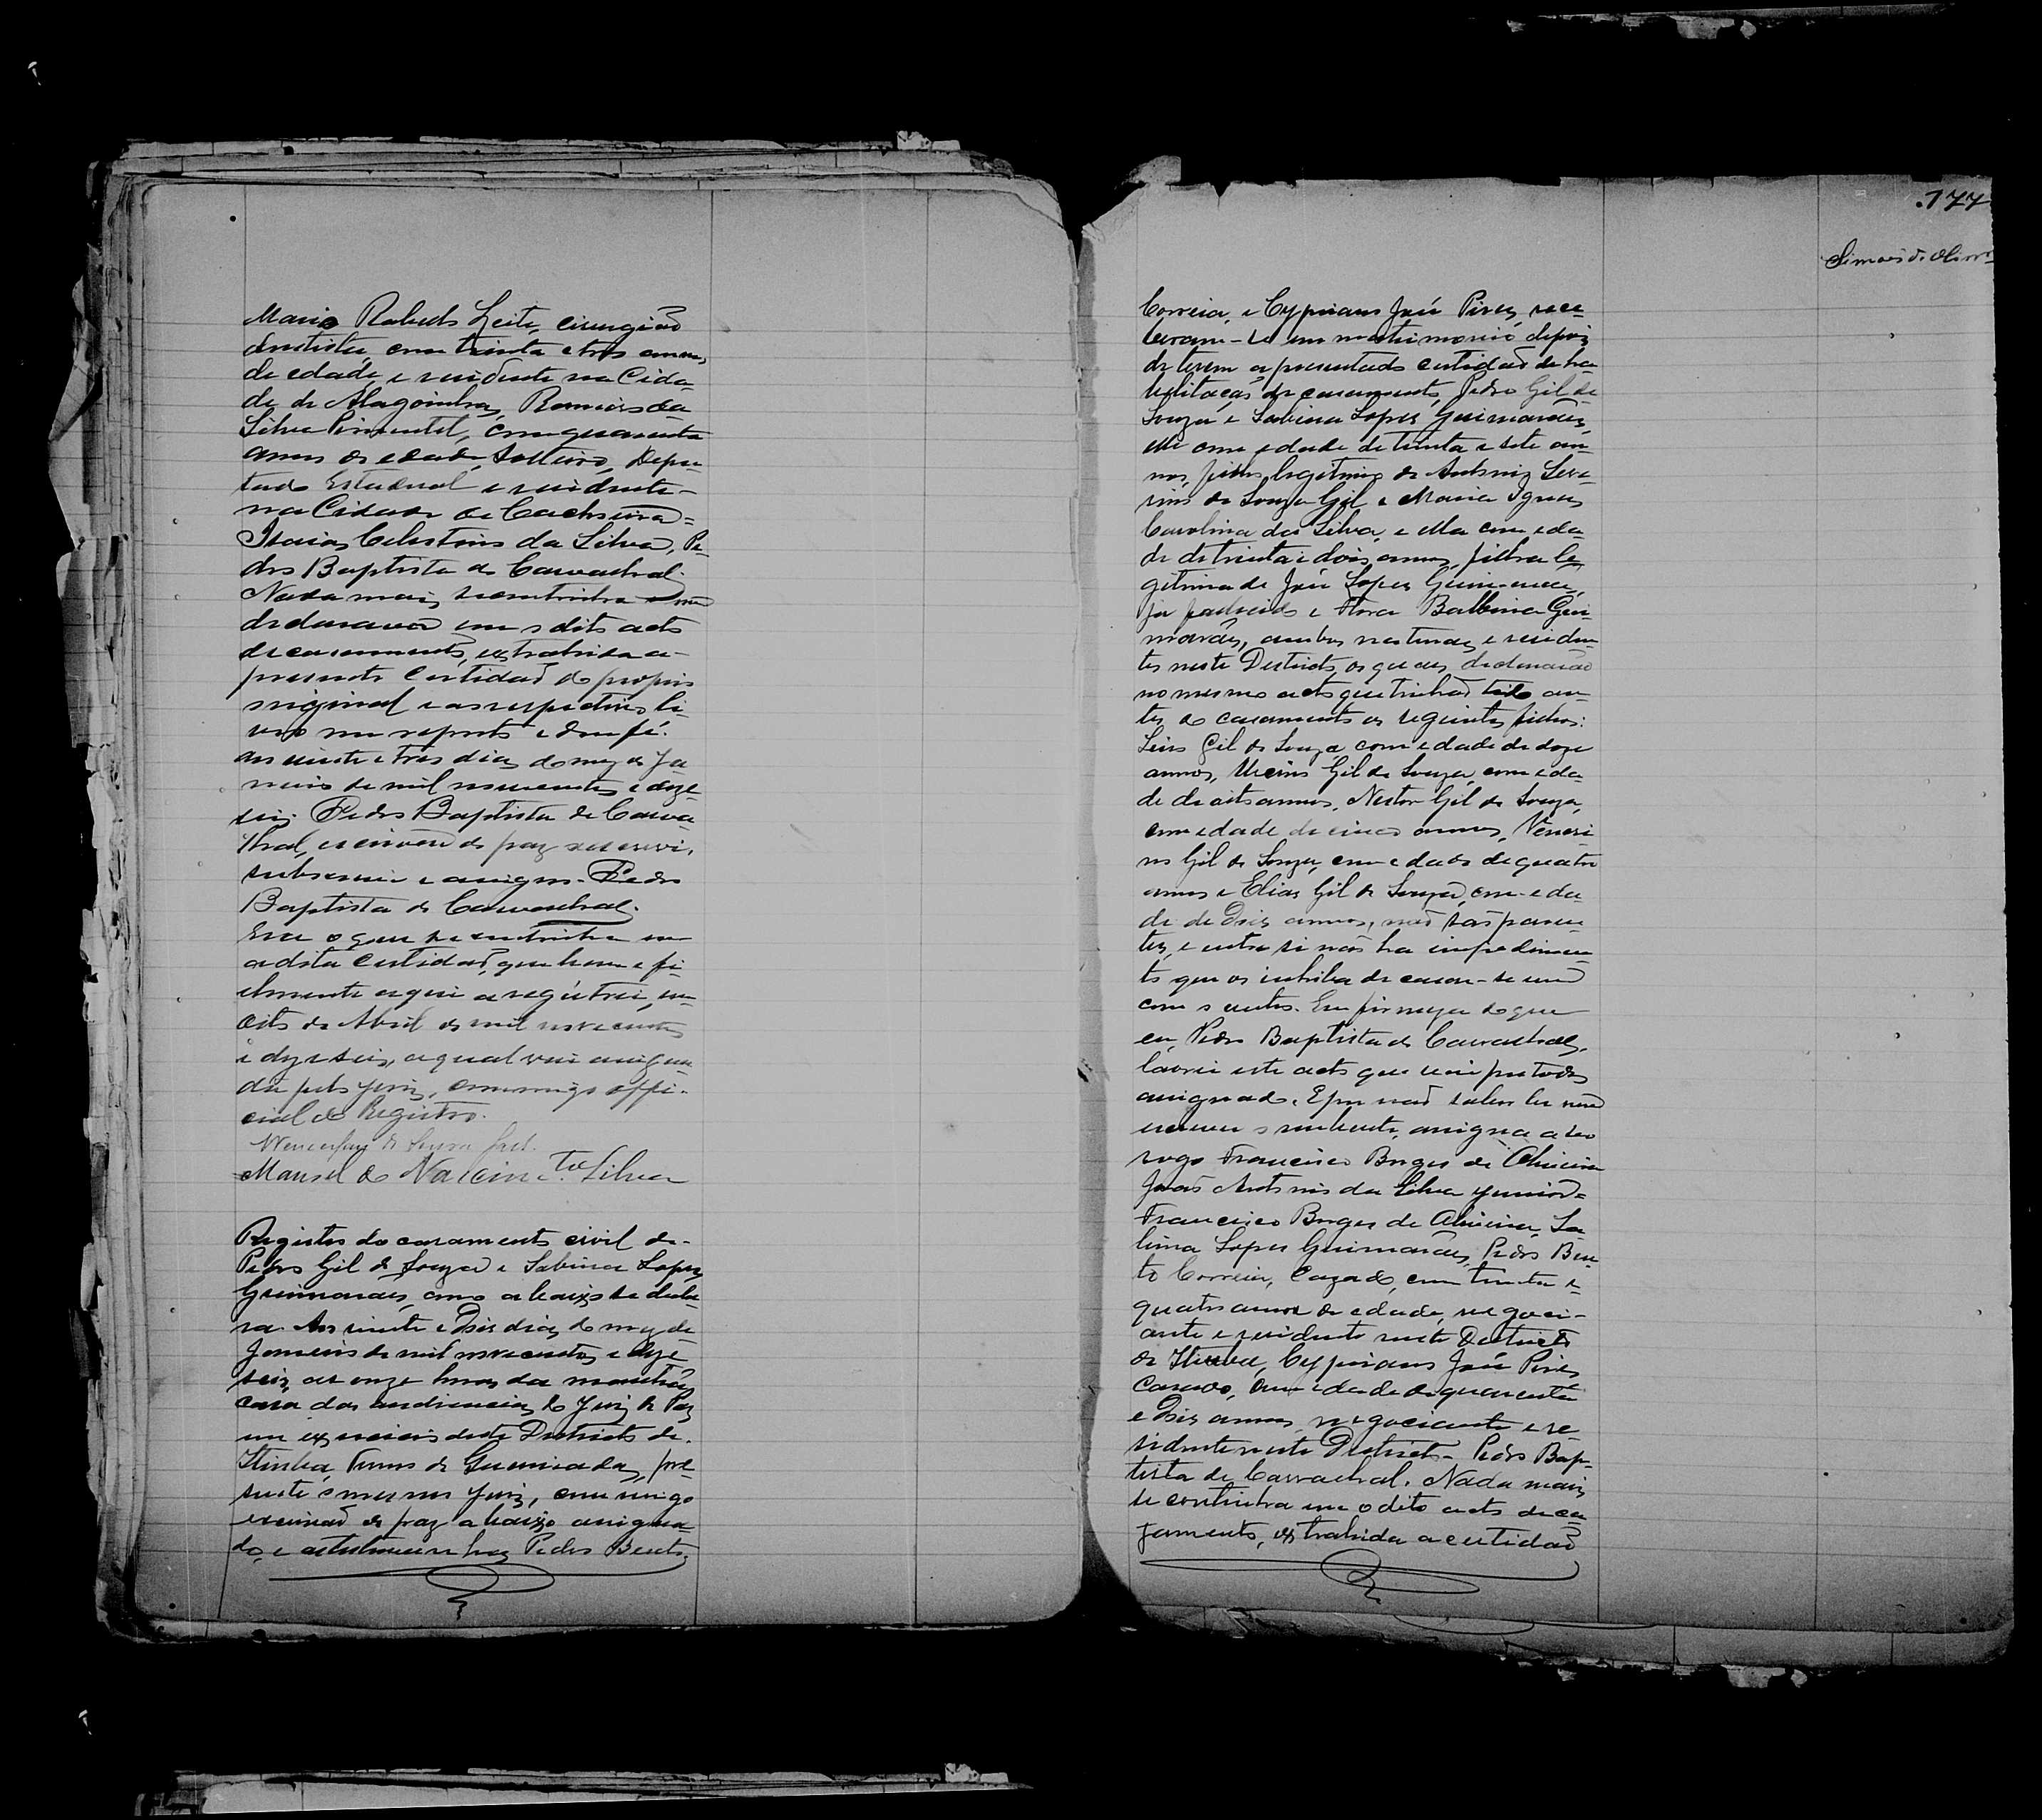 Mario Roberto Leite, cirurgião
dentista, com trinta e tres annos
de edade, e residente na Cida-
de de Alagoinhas, Ramiro da
Silva Pimentel, com quarenta
annos de edade, solteiro, Depu-
tado Estadual e residente
na Cidade de Cachoeira =
Isaias Celestino da Silva, Pe-
dro Baptista de Carvalhal.
Nada mais se continha e nem
declarava em o dito acto
de casamento, extrahida a
presente certidaõ do proprio
original e ao respectivo li-
vro me reporto e dou fé.
aos vinte e tres dias do mez de Ja-
neiro de mil novecentos e deze-
seis. Pedro Baptista de Carva-
lhal, escrivaõ de paz escrevi,
subscrevi e assigno. Pedro
Baptista de Carvalhal.
Era o que se continha em
a dita certidaõ, que bem e fi-
elmente aqui a registrei, em
oito de Abril de mil novecentos
e dezeseis, a qual vai assigna-
da pelo Juiz, commigo offi-
cial do Registro.
de Souza
Manoel do Nascim.to Silva
Registro do casamento civil de
Pedro Gil de Souza e Sabina Lopes
Guimaraes, como abaixo se decla-
ra. Aos vinte e dois dias do mez de
Janeiro de mil novecentos e deze-
seis, as onze horas da manhã,
casa das audiencias do Juiz de Paz
em exercicio deste Districto de
Itiuba, Termo de Queimadas, pre-
sente o mesmo Juiz, commigo
escrivaõ de paz abaixo assigna-
do, e as testemunhas Pedro Bento
177
Simoes de Olivr.a
Correia, e Cypriano José Pires, rece-
beram-se em matrimonio depois
de terem apresentado certidaõ de ha-
bilitaçaõ de casamento, Pedro Gil de
Souza e Sabina Lopes Guimarães,
elle com edade de trinta e sete an-
nos, filho legitimo de Antonio Seve-
rino de Souza Gil e Maria Ignez
Carolina da Silva, e ella com eda-
de de trinta e dois annos, filha le-
gitima de José Lopes Guimaraes,
ja fallecido e Flora Balbina Gui-
marães, ambos naturaes e residen-
tes neste Districto, os quaes declararaõ
no mesmo acto que tinhaõ tido an-
tes do casamento os seguintes filhos:
Luis Gil de Souza com edade de doze
annos, Gil de Souza, com eda-
de de oito annos, Nestor Gil de Souza,
com edade de cinco annos, Veneri-
no Gil de Souza, com edade de quatro
annos e Elias Gil de Souza, com eda-
de de dois annos, naõ saõ paren-
tes, e entre si naõ ha impedimen-
to que os inhiba de casar-se um
com o outro. Em firmeza do que
eu, Pedro Baptista de Carvalhal,
lavrei este acto que vai por todos
assignado. E por naõ saber ler nem
escrever o nubente, assigna a seo
rogo Francisco Borges de Oliveira
Joaõ Antonio da Silva Junior =
Francisco Borges de Oliveira, Sa-
bina Lopes Guimarães, Pedro Ben-
to Correia, cazado, com trinta e
quatro annos de edade, negoci-
ante e residente neste Districto
de Itiuba, Cypriano José Pires
casado, com edade de quarenta
e dois annos, negociante e re-
sidente neste Districto - Pedro Bap-
tista de Carvalhal. Nada mais
se continha em o dito acto de ca-
zamento, extrahida a certidaõ